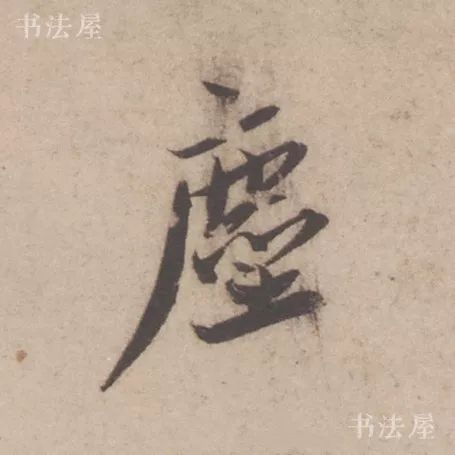 书法屋
虛
书法屋